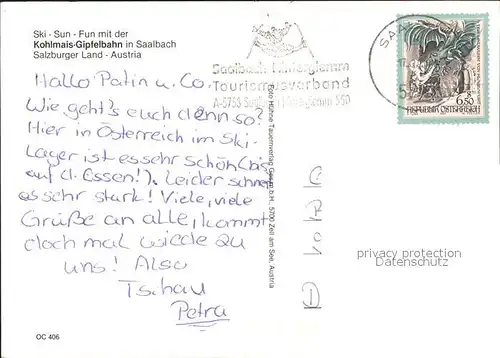 Ski - Sun - Fun mit der
Kohlmais-Gipfelbahn in Saalbach
Salzburger Land - Austria
Hallo Patin u. Co.
Wie geht's euch denn so?
Hier in Österreich im Ski-
Lager ist es sehr schön (bis
auf d. Essen!). Leider schneit
es sehr stark! Viele, viele
Grüße an alle, kommt
doch mal wiede zu
uns! Also
Tschau
Petra
OC 406
Foto Huhne Tauernverlag Ges.m.b.H., 5700 Zell am See, Austria
Saalbach Hinterglemm
Tourismusverband
A-5753 Saalbach Hinterglemm 550
SAA
650
REPUBLIK ÖSTERREICH
privacy protection
Datenschutz